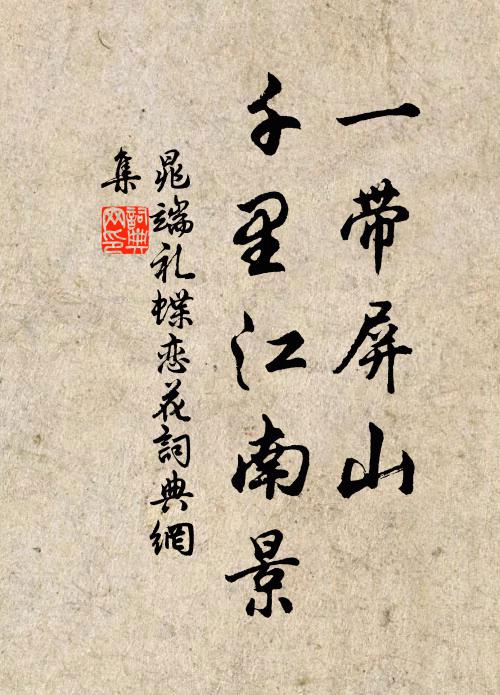 一带屏山
千里江南景
晁端礼蝶恋花詞典網
集
詞典网印